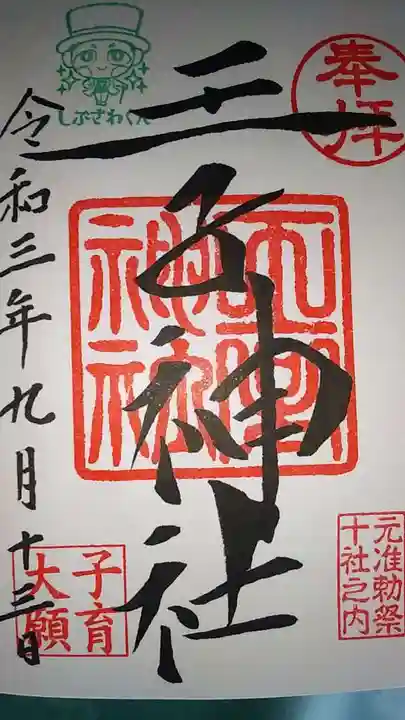 奉拝
元准勅祭
十社之内
王子神社
しぶさわくん
子育
大願
令和三年九月十三日